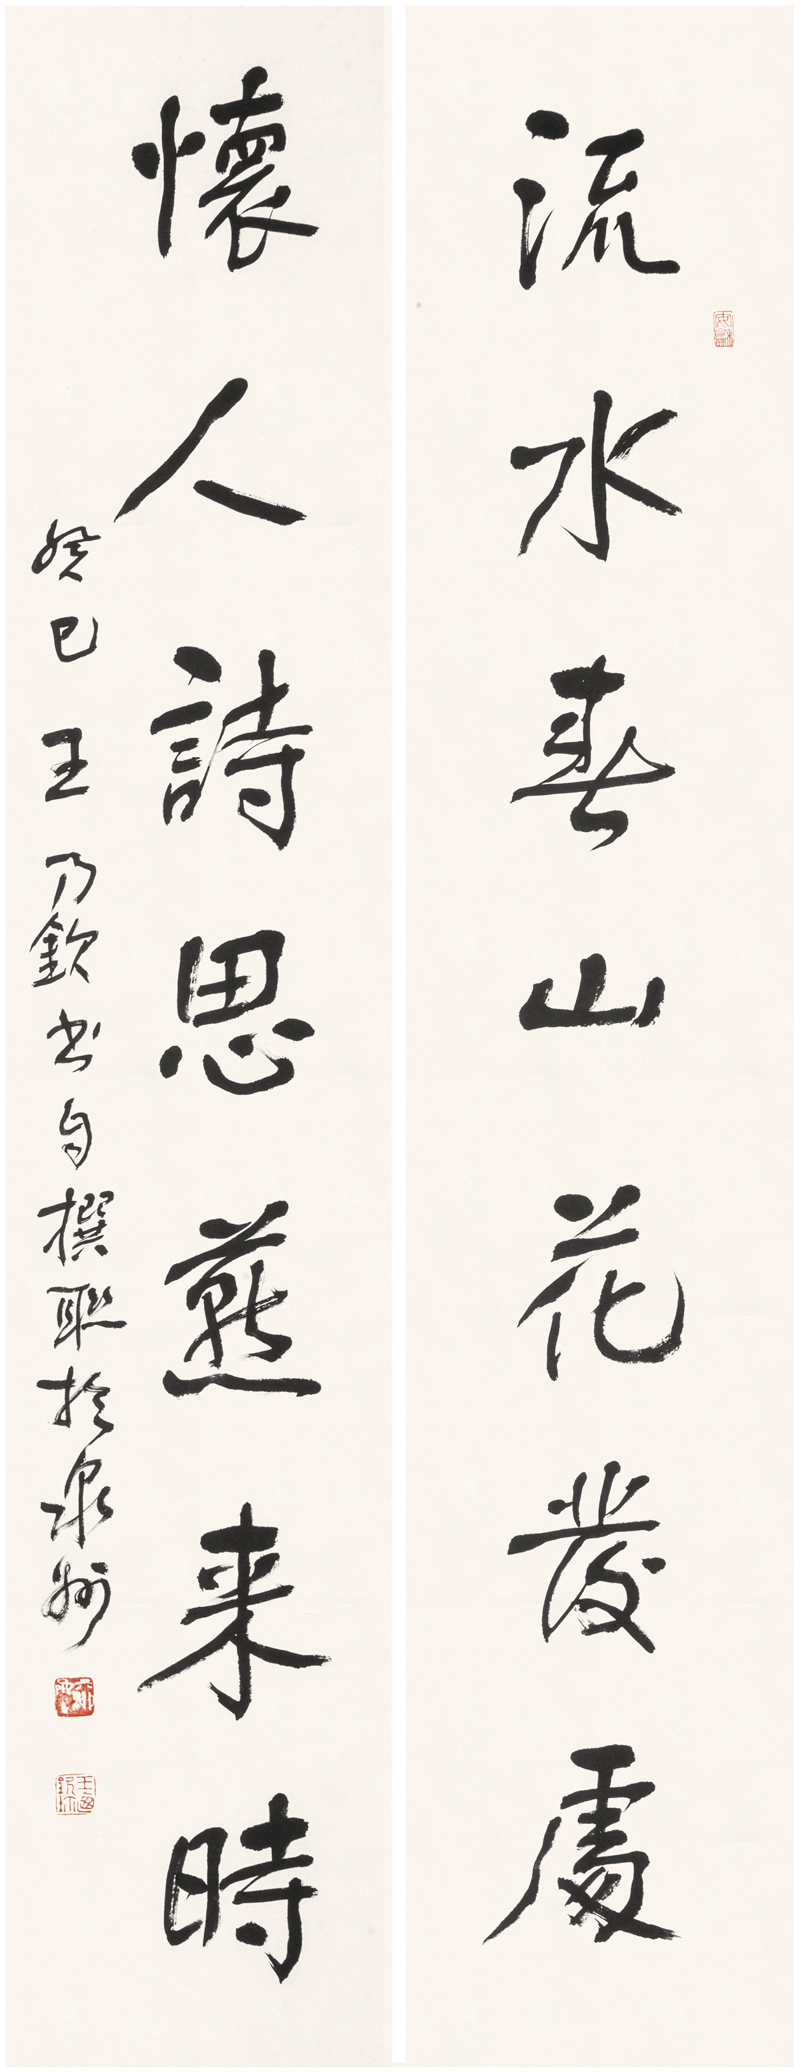 流水春山花發處
懷人詩思燕来時
癸巳王乃欽书自撰聯於泉州